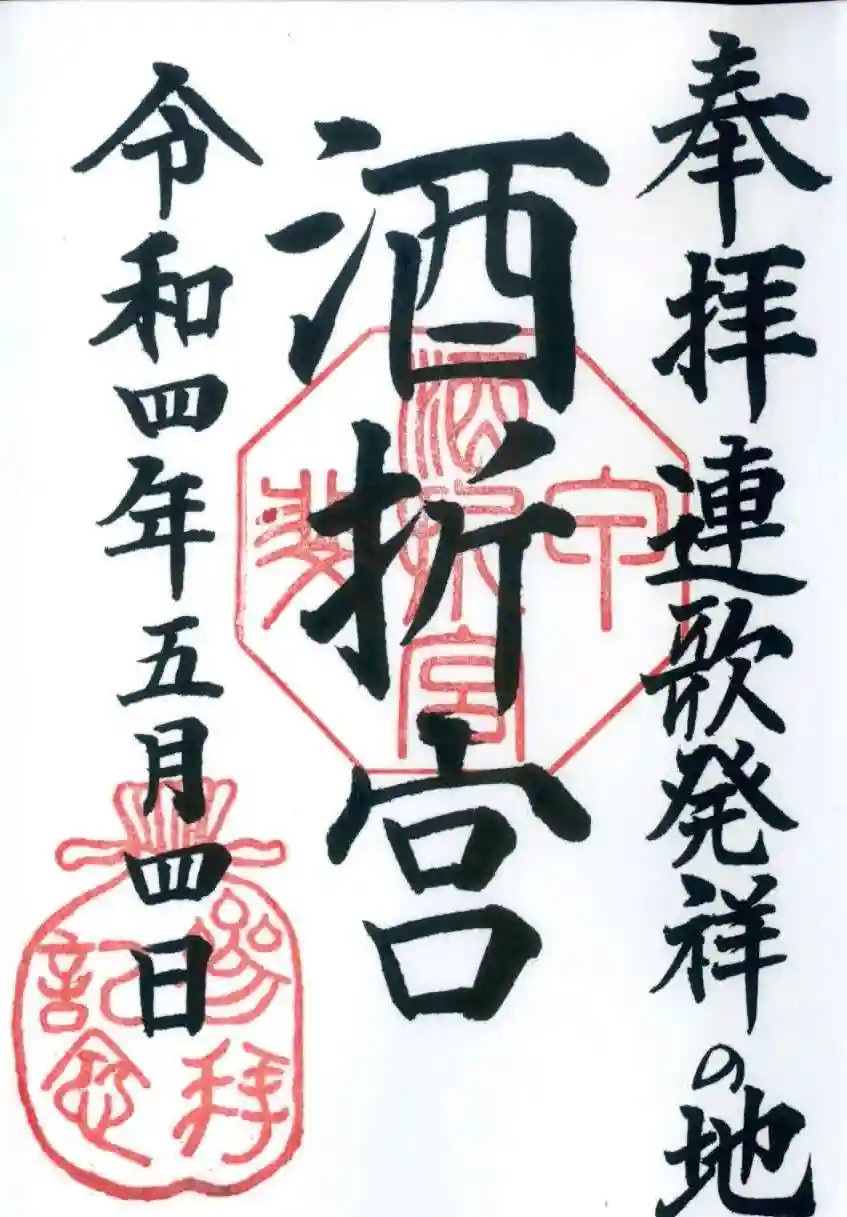 奉拝 連歌発祥の地
酒折宮
令和四年五月四日
甲斐
酒折宮
参拝
記念